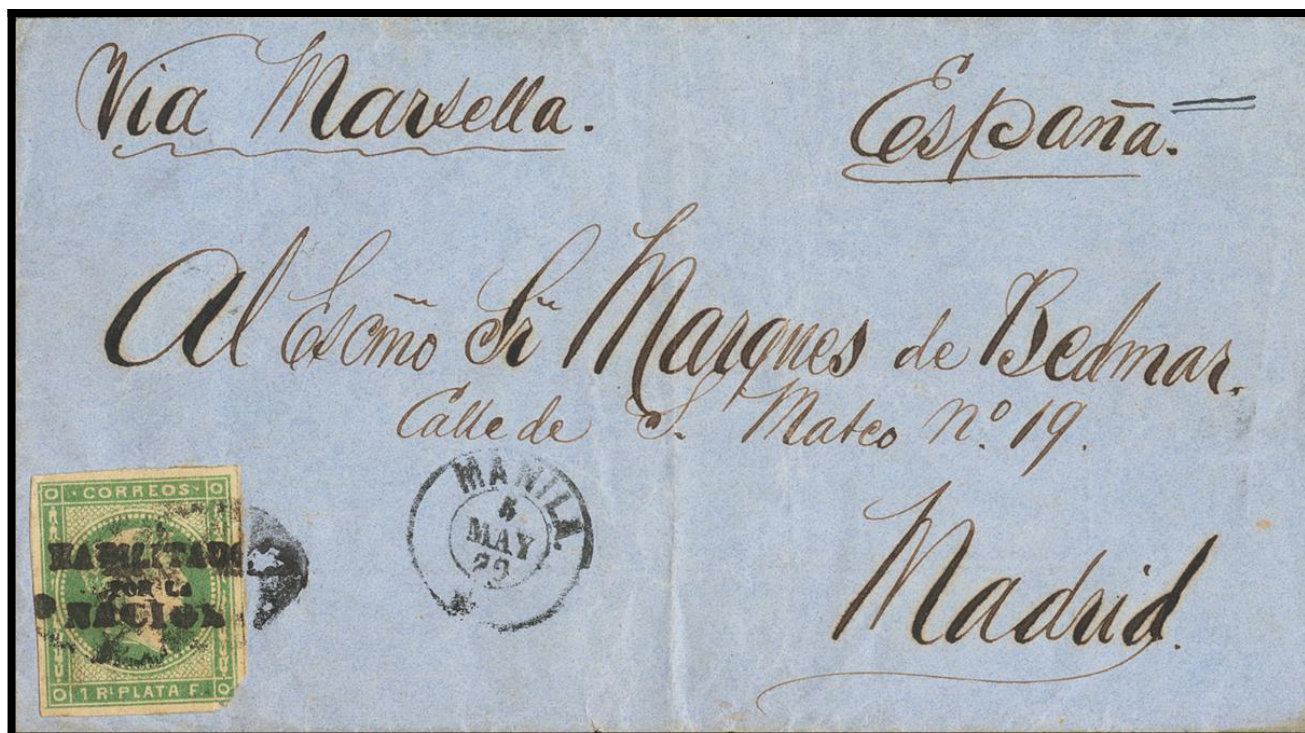 Via Marsella.
España.
Al Escmo Sr Marques de Bedmar.
Calle de S. Mateo Nº. 19.
Madrid.
MANILA
5
MAY
CORREOS
HABILITADO
POR LA
NACION
1 Rl PLATA F.